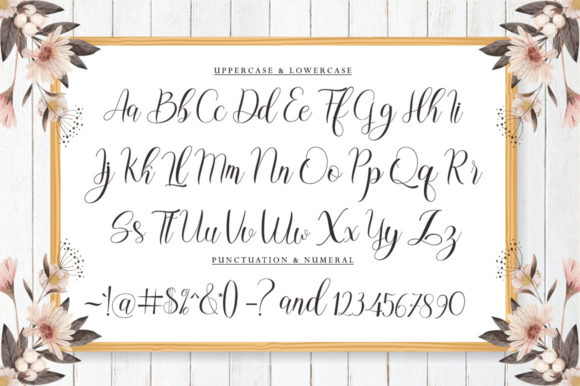 UPPERCASE & LOWERCASE
Aa Bb Cc Dd Ee Ff Gg Hh Ii
Jj Kk Ll Mm Nn Oo Pp Qq Rr
Ss Tt Uu Vv Ww Xx Yy Zz
PUNCTUATION & NUMERAL
~!@#$%^&*() -? and 1234567890